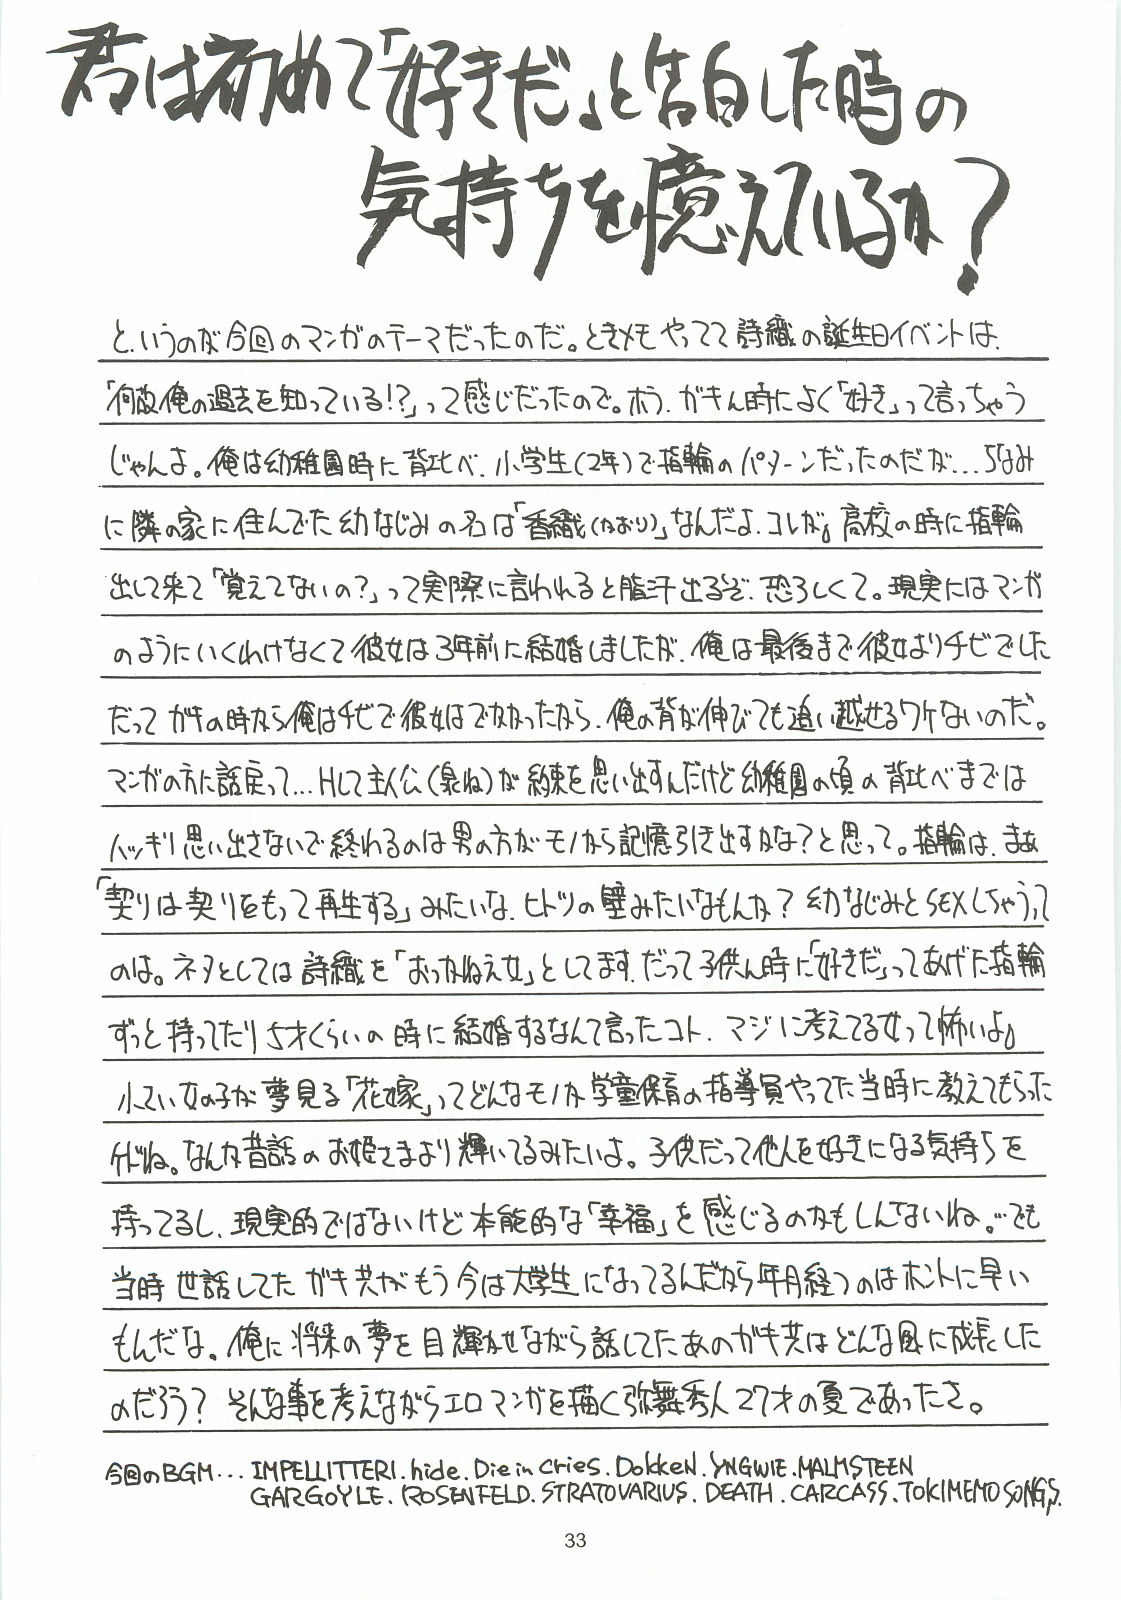 君は初めて「好きだ」と告白した時の
気持ちを憶えているか?
と、いうのが今回のマンガのテーマだったのだ。ときメモやってて詩織の誕生日イベントは、
「何故俺の過去を知っている!?」って感じだったので。ホラ、ガキん時によく「好き」って言っちゃう
じゃんよ。俺は幼稚園時に背比べ、小学生(2年)で指輪のパターンだったのだが...ちなみ
に隣の家に住んでた幼なじみの名は「香織(かおり)」なんだよ、コレが。高校の時に指輪
出して来て「覚えてないの?」って実際に言われると脂汗出るぞ、恐ろしくて。現実にはマンガ
のようにいくわけなくて彼女は3年前に結婚しましたが、俺は最後まで彼女よりチビでした
だってガキの時から俺はチビで彼女はでかかったから、俺の背が伸びても追い越せるワケないのだ。
マンガの方に話戻って...Hして主人公(泉ね)が約束を思い出すんだけど幼稚園の頃の背比べまでは
ハッキリ思い出さないで終わるのは男の方がモノから記憶引き出すかな?と思って。指輪は、まぁ
「契りは契りをもって再生する」みたいな、ヒトツの壁みたいなもんか?幼なじみとSEXしちゃうって
のは。ネタとしては詩織を「おっかねえ女」としてます、だって子供ん時に「好きだ」ってあげた指輪
ずっと持ってたり5才くらいの時に結婚するなんて言ったコト、マジに考えてる女って怖いよ。
小さい女の子が夢見る「花嫁」ってどんなモノか学童保育の指導員やってた当時に教えてもらった
けどね。なんか昔話のお姫さまより輝いてるみたいよ。子供だって他人を好きになる気持ちを
持ってるし、現実的ではないけど本能的な「幸福」を感じるのかもしんないね。...でも
当時世話してたガキ共がもう今は大学生になってるんだから年月経つのはホントに早い
もんだな。俺に将来の夢を目輝かせながら話してたあのガキ共はどんな風に成長した
のだろう?そんな事を考えながらエロマンガを描く弥舞秀人27才の夏であったさ。
今回のBGM...IMPELLITTERI.hide.Die in Cries.DokkeN.YNGWIE.MALMSTEEN
GARGOYLE.ROSENFELD.STRATOVARIUS.DEATH.CARCASS.TOKIMEMO SONGS.
33